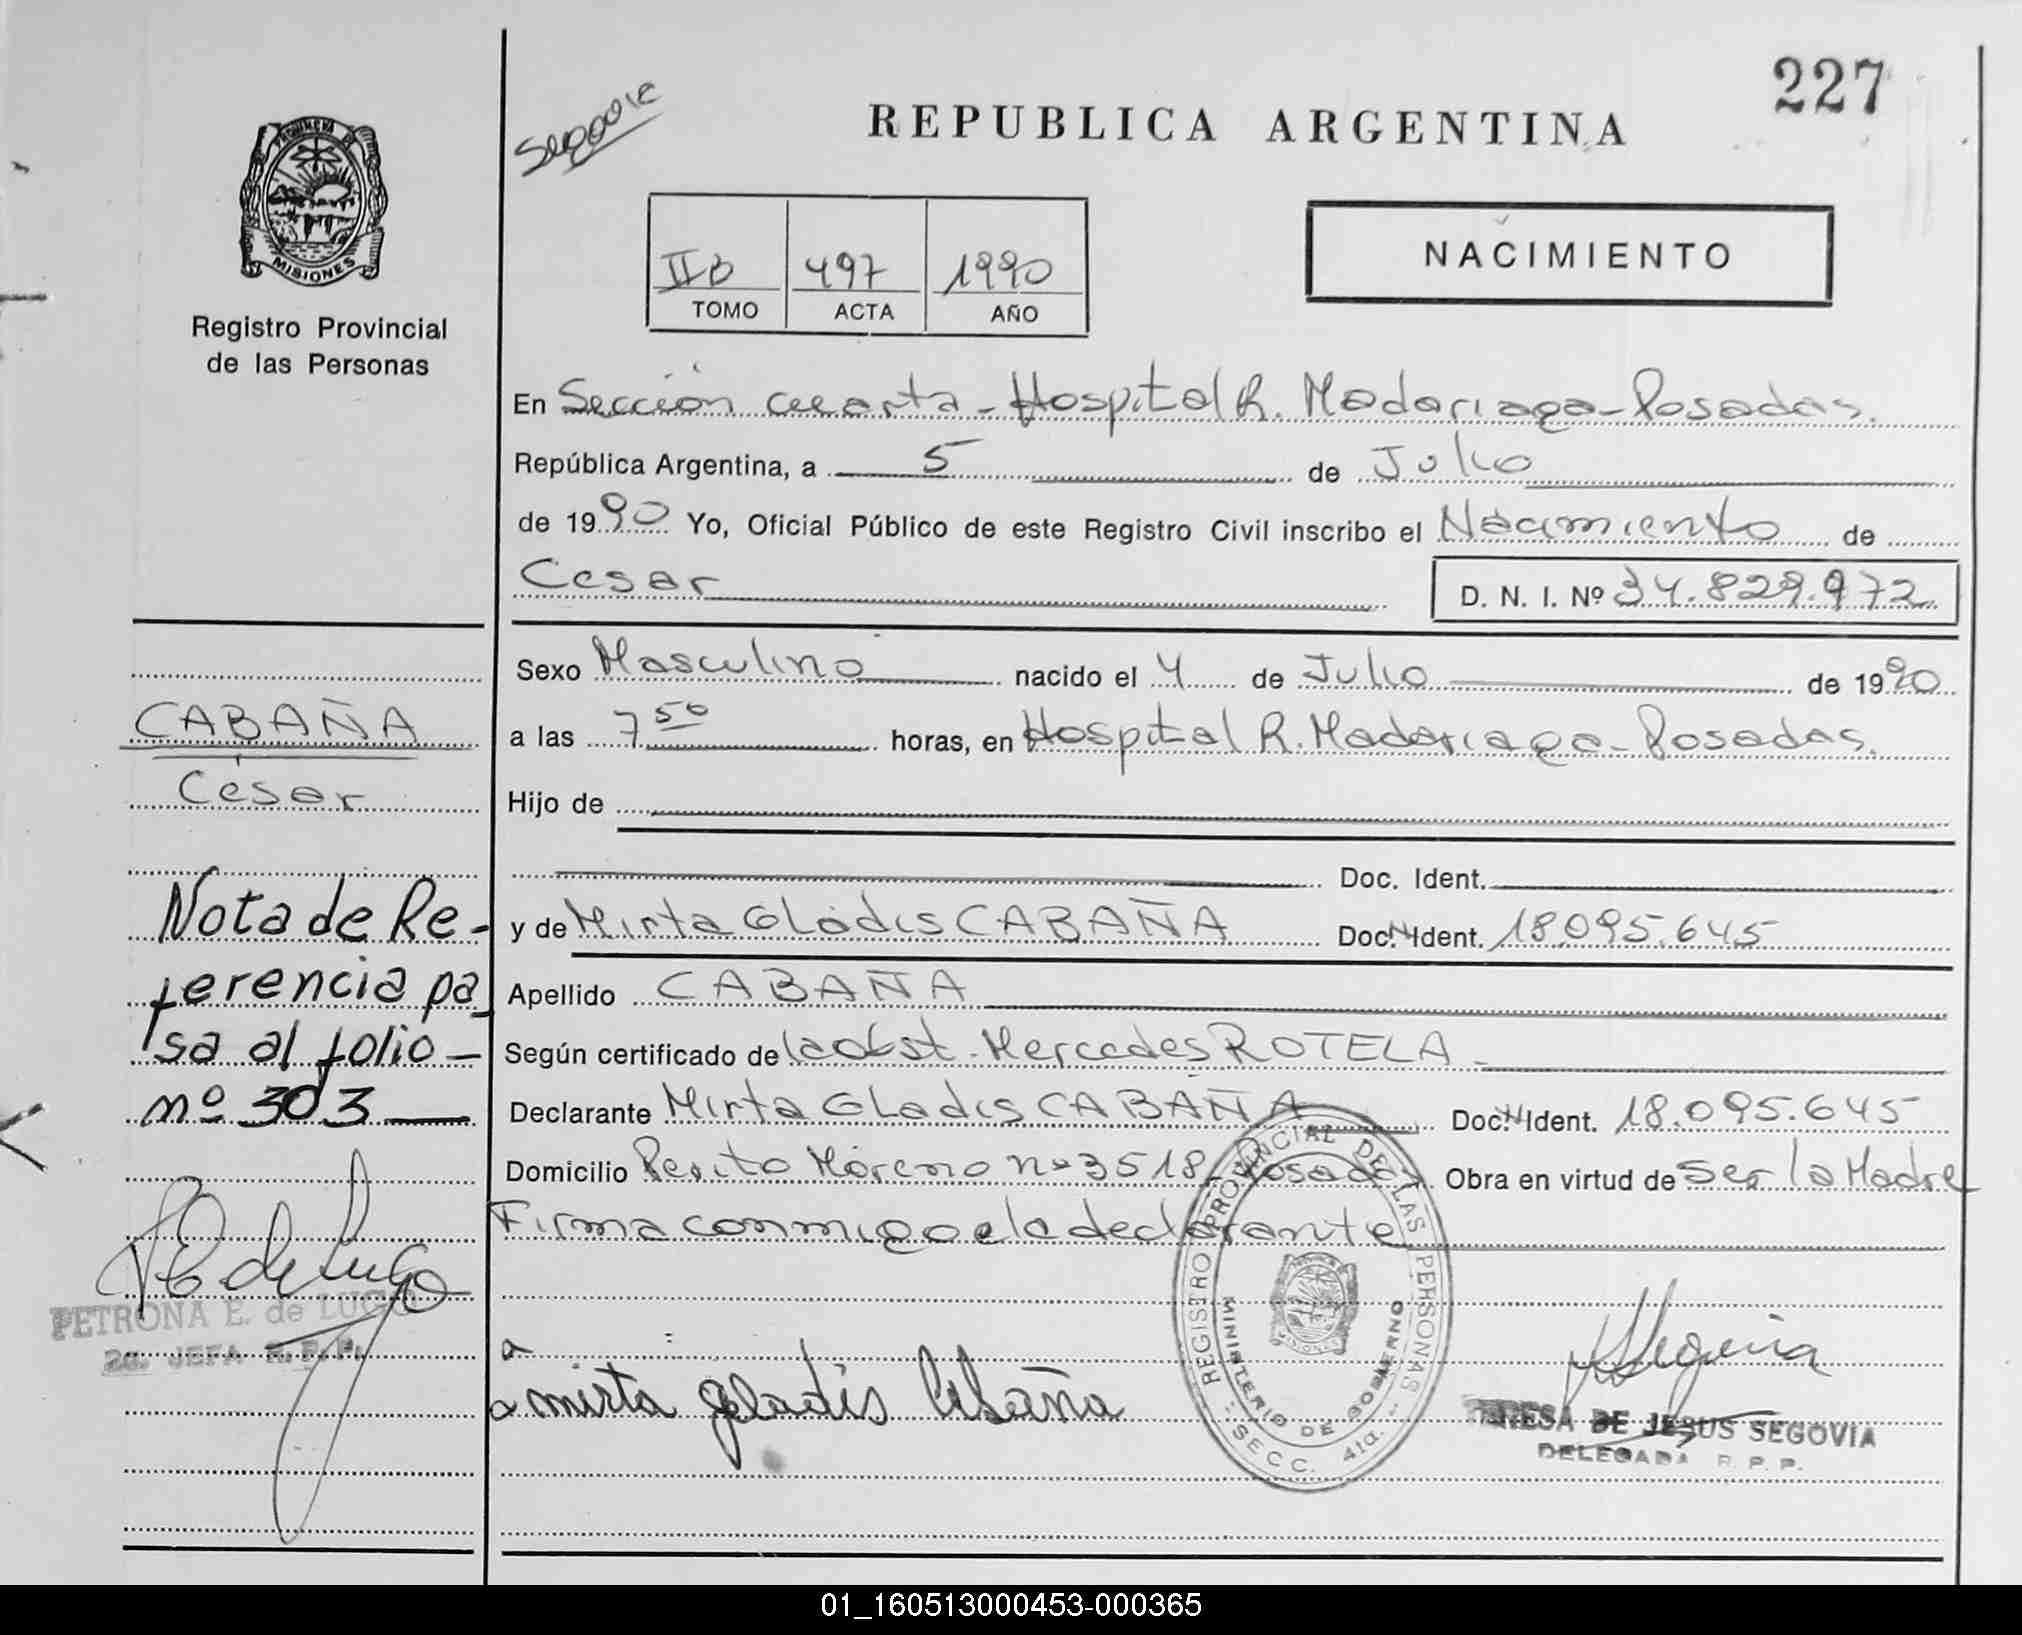 227
REPUBLICA ARGENTINA
PROVINCIA DE
MISIONES
Registro Provincial
de las Personas
NACIMIENTO
II B 497 1990
TOMO ACTA AÑO
En Sección cuarta - Hospital R. Madariaga - Posadas.
República Argentina, a 5 de Julio
de 1990 Yo, Oficial Público de este Registro Civil inscribo el Nacimiento de
Cesar D. N. I. Nº 34.829.972
Sexo Masculino nacido el 4 de Julio de 1990
a las 7 50 horas, en Hospital R. Madariaga - Posadas.
Hijo de
Doc. Ident.
y de Mirta Gladis CABAÑA Doc. N Ident. 18.095.645
Apellido CABAÑA
Según certificado de la obst. Mercedes ROTELA
Declarante Mirta Gladis CABAÑA Doc. N Ident. 18.095.645
Domicilio Perito Moreno nº 3518 Posadas Obra en virtud de Ser la Madre
Firma conmigo la declarante
mirta gladis Cabaña
CABAÑA
César
Nota de Re-
ferencia pa-
sa al folio
nº 303
PETRONA E. de LUGO
2a. JEFA R. P. P.
REGISTRO PROVINCIAL DE LAS PERSONAS
MINISTERIO DE GOBIERNO
SECC. 4ta.
TERESA DE JESUS SEGOVIA
DELEGADA R. P. P.
01_160513000453-000365